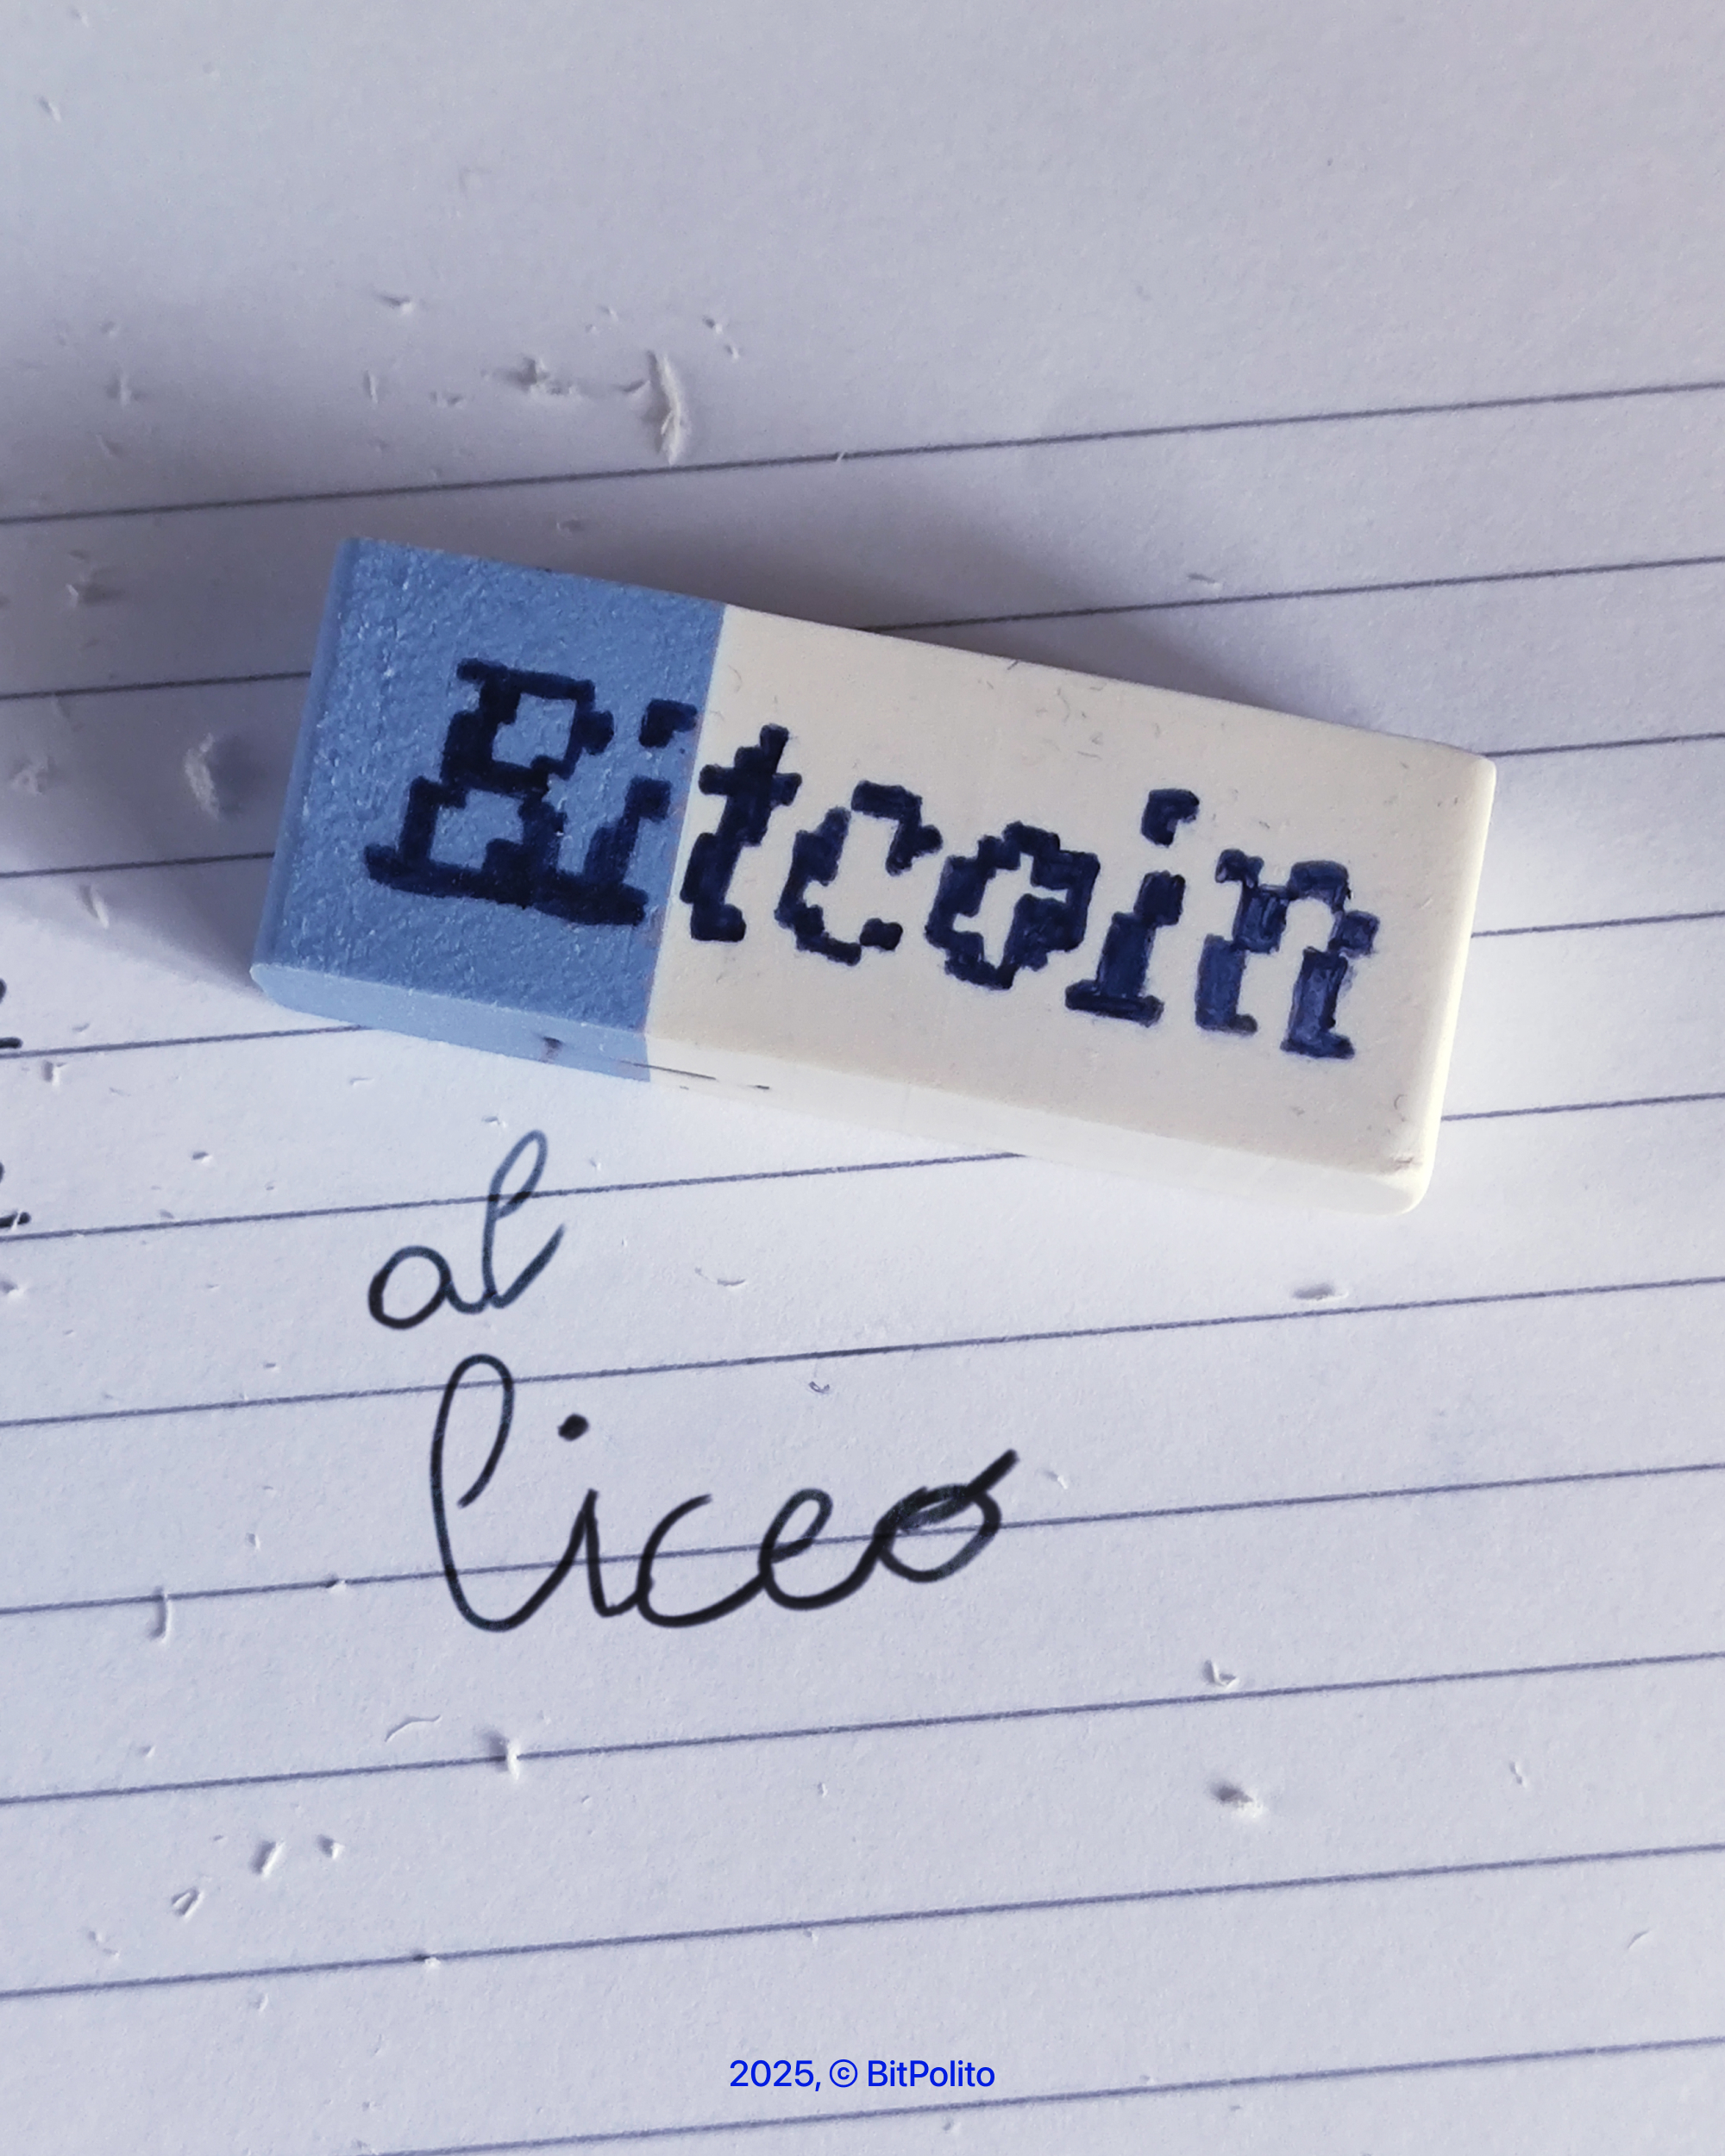 Bitcoin
al
liceo
2025, © BitPolito